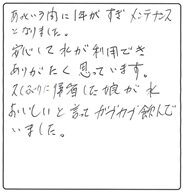 あっという間に1年がすぎメンテナンス
となりました。
安心して水が利用でき
ありがたく思っています。
久しぶりに帰省した娘が水
おいしいと言ってガブガブ飲んで
いました。